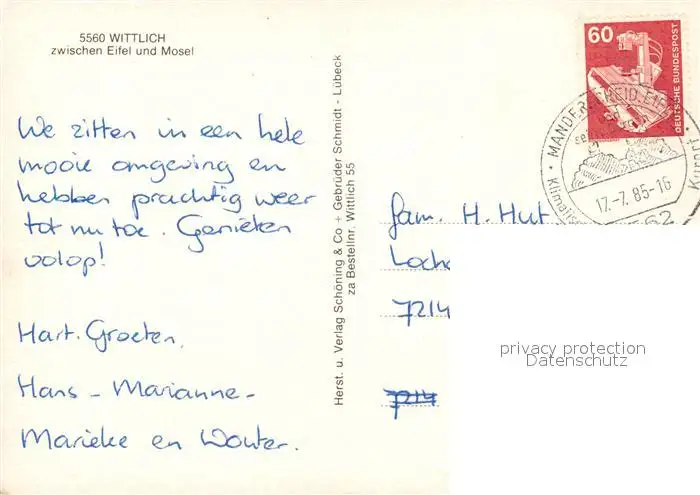 5560 WITTLICH
zwischen Eifel und Mosel
We zitten in een hele
mooie omgeving en
hebben prachtig weer
tot nu toe. Genieten
volop!
Hart. Groeten,
Hans - Marianne -
Marieke en Wouter.
Herst. u. Verlag Schöning & Co + Gebrüder Schmidt - Lübeck
za Bestellnr. Wittlich 55
60
DEUTSCHE BUNDESPOST
MANDERSCHEID, EIFEL
17.-7. 85-16
Kurort
562
fam. H. Hut
Loche
7214
7214
privacy protection
Datenschutz